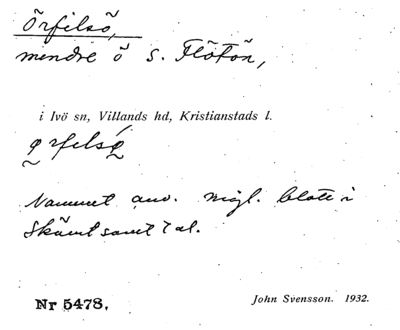 Örfilsö,
mindre ö s. Flötön,
i Ivö sn, Villands hd, Kristianstads l.
Namnet anv. mögl. blott i
skämtsamt tal.
Nr 5478.
John Svensson. 1932.